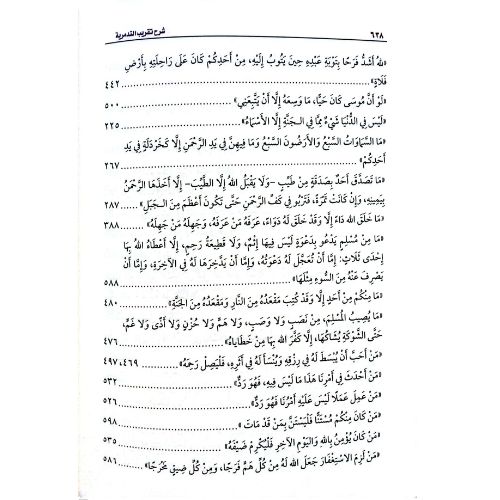 ٦٢٨ شرح تقريب التدمرية
«للهُ أَشَدُّ فَرَحًا بِتَوْبَةِ عَبْدِهِ حِينَ يَتُوبُ إِلَيْهِ، مِنْ أَحَدِكُمْ كَانَ عَلَى رَاحِلَتِهِ بِأَرْضِ
فَلَاةٍ» ٤٤٢
«لَوْ أَنَّ مُوسَى كَانَ حَيًّا، مَا وَسِعَهُ إِلَّا أَنْ يَتَّبِعَنِي» ٥٠٠
«لَيْسَ فِي الدُّنْيَا شَيْءٌ مِمَّا فِي الجَنَّةِ إِلَّا الأَسْمَاءُ» ٢٢٥
«مَا السَّمَاوَاتُ السَّبْعُ وَالأَرَضُونَ السَّبْعُ وَمَا فِيهِنَّ فِي يَدِ الرَّحْمَنِ إِلَّا كَخَرْدَلَةٍ فِي يَدِ
أَحَدِكُمْ» ٢٦٧
«مَا تَصَدَّقَ أَحَدٌ بِصَدَقَةٍ مِنْ طَيِّبٍ -وَلَا يَقْبَلُ اللهُ إِلَّا الطَّيِّبَ- إِلَّا أَخَذَهَا الرَّحْمَنُ
بِيَمِينِهِ، وَإِنْ كَانَتْ تَمْرَةً، فَتَرْبُو فِي كَفِّ الرَّحْمَنِ حَتَّى تَكُونَ أَعْظَمَ مِنَ الجَبَلِ» ٢٨٧
«مَا خَلَقَ اللهُ دَاءً إِلَّا وَقَدْ خَلَقَ لَهُ دَوَاءً، عَرَفَهُ مَنْ عَرَفَهُ، وَجَهِلَهُ مَنْ جَهِلَهُ» ٣٨٨
«مَا مِنْ مُسْلِمٍ يَدْعُو بِدَعْوَةٍ لَيْسَ فِيهَا إِثْمٌ، وَلَا قَطِيعَةُ رَحِمٍ، إِلَّا أَعْطَاهُ اللهُ بِهَا
إِحْدَى ثَلَاثٍ: إِمَّا أَنْ تُعَجَّلَ لَهُ دَعْوَتُهُ، وَإِمَّا أَنْ يَدَّخِرَهَا لَهُ فِي الآخِرَةِ، وَإِمَّا أَنْ
يَصْرِفَ عَنْهُ مِنَ السُّوءِ مِثْلَهَا» ٥٨٨
«مَا مِنْكُمْ مِنْ أَحَدٍ إِلَّا وَقَدْ كُتِبَ مَقْعَدُهُ مِنَ النَّارِ وَمَقْعَدُهُ مِنَ الجَنَّةِ» ٤٨٠
«مَا يُصِيبُ المُسْلِمَ، مِنْ نَصَبٍ وَلَا وَصَبٍ، وَلَا هَمٍّ وَلَا حُزْنٍ وَلَا أَذًى وَلَا غَمٍّ،
حَتَّى الشَّوْكَةِ يُشَاكُهَا، إِلَّا كَفَّرَ اللهُ بِهَا مِنْ خَطَايَاهُ» ٤٧٦
«مَنْ أَحَبَّ أَنْ يُبْسَطَ لَهُ فِي رِزْقِهِ وَيُنْسَأَ لَهُ فِي أَثَرِهِ، فَلْيَصِلْ رَحِمَهُ» ٤٦٩، ٤٩٧
«مَنْ أَحْدَثَ فِي أَمْرِنَا هَذَا مَا لَيْسَ فِيهِ، فَهُوَ رَدٌّ» ٥٣٢
«مَنْ عَمِلَ عَمَلًا لَيْسَ عَلَيْهِ أَمْرُنَا فَهُوَ رَدٌّ» ٥٢٦
«مَنْ كَانَ مِنْكُمْ مُسْتَنًّا فَلْيَسْتَنَّ بِمَنْ قَدْ مَاتَ» ٥٩٨
«مَنْ كَانَ يُؤْمِنُ بِاللهِ وَاليَوْمِ الآخِرِ فَلْيُكْرِمْ ضَيْفَهُ» ٥٣٥
«مَنْ لَزِمَ الاسْتِغْفَارَ جَعَلَ اللهُ لَهُ مِنْ كُلِّ هَمٍّ فَرَجًا، وَمِنْ كُلِّ ضِيقٍ مَخْرَجًا» ٥٨٦